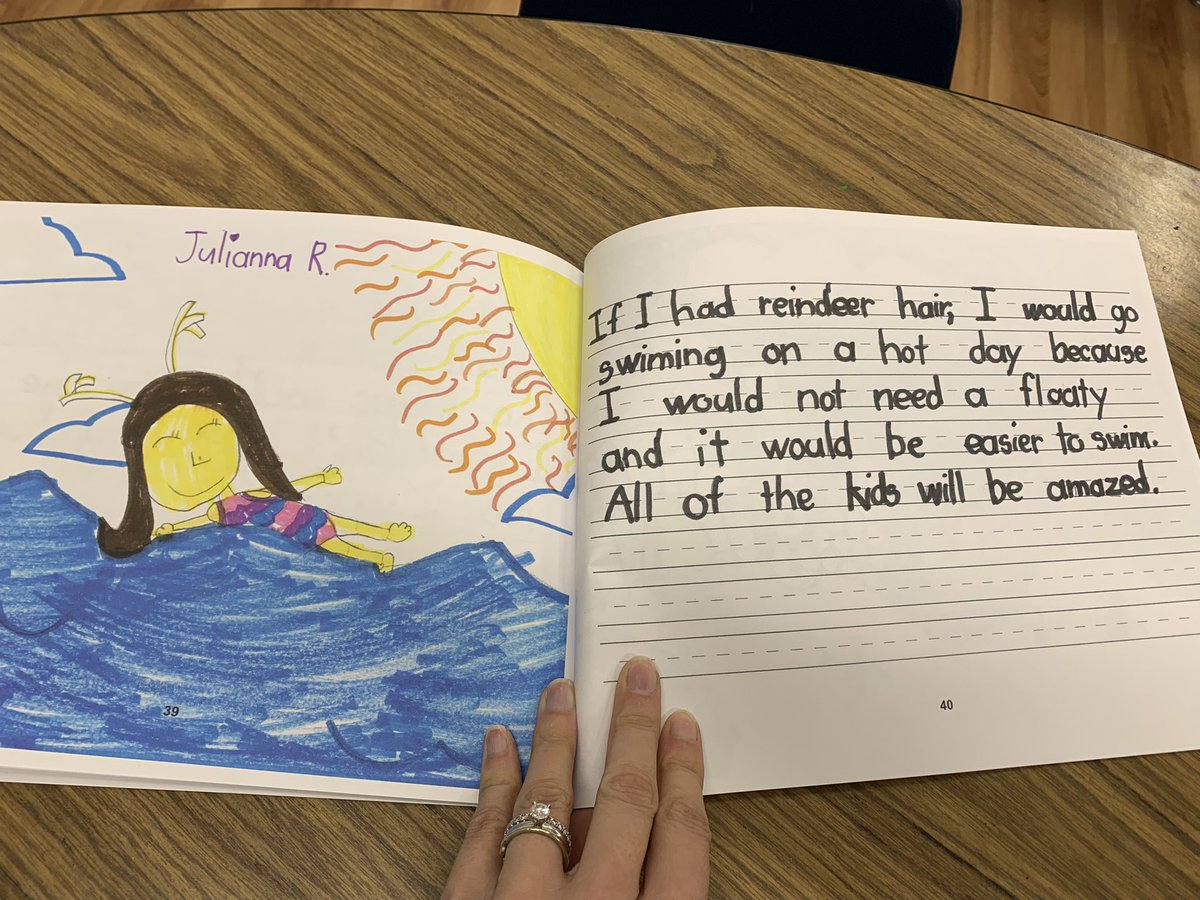 Julianna R.
39
If I had reindeer hair, I would go
swiming on a hot day because
I would not need a floaty
and it would be easier to swim.
All of the kids will be amazed.
40